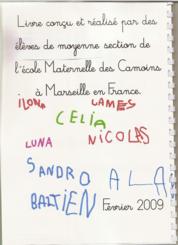 Livre conçu et réalisé par des
élèves de moyenne section de
l'école Maternelle des Camoins
à Marseille en France.
ILONA JAMES
CELIA
LUNA NICOLAS
SANDRO ALA
BASTIEN
Février 2009